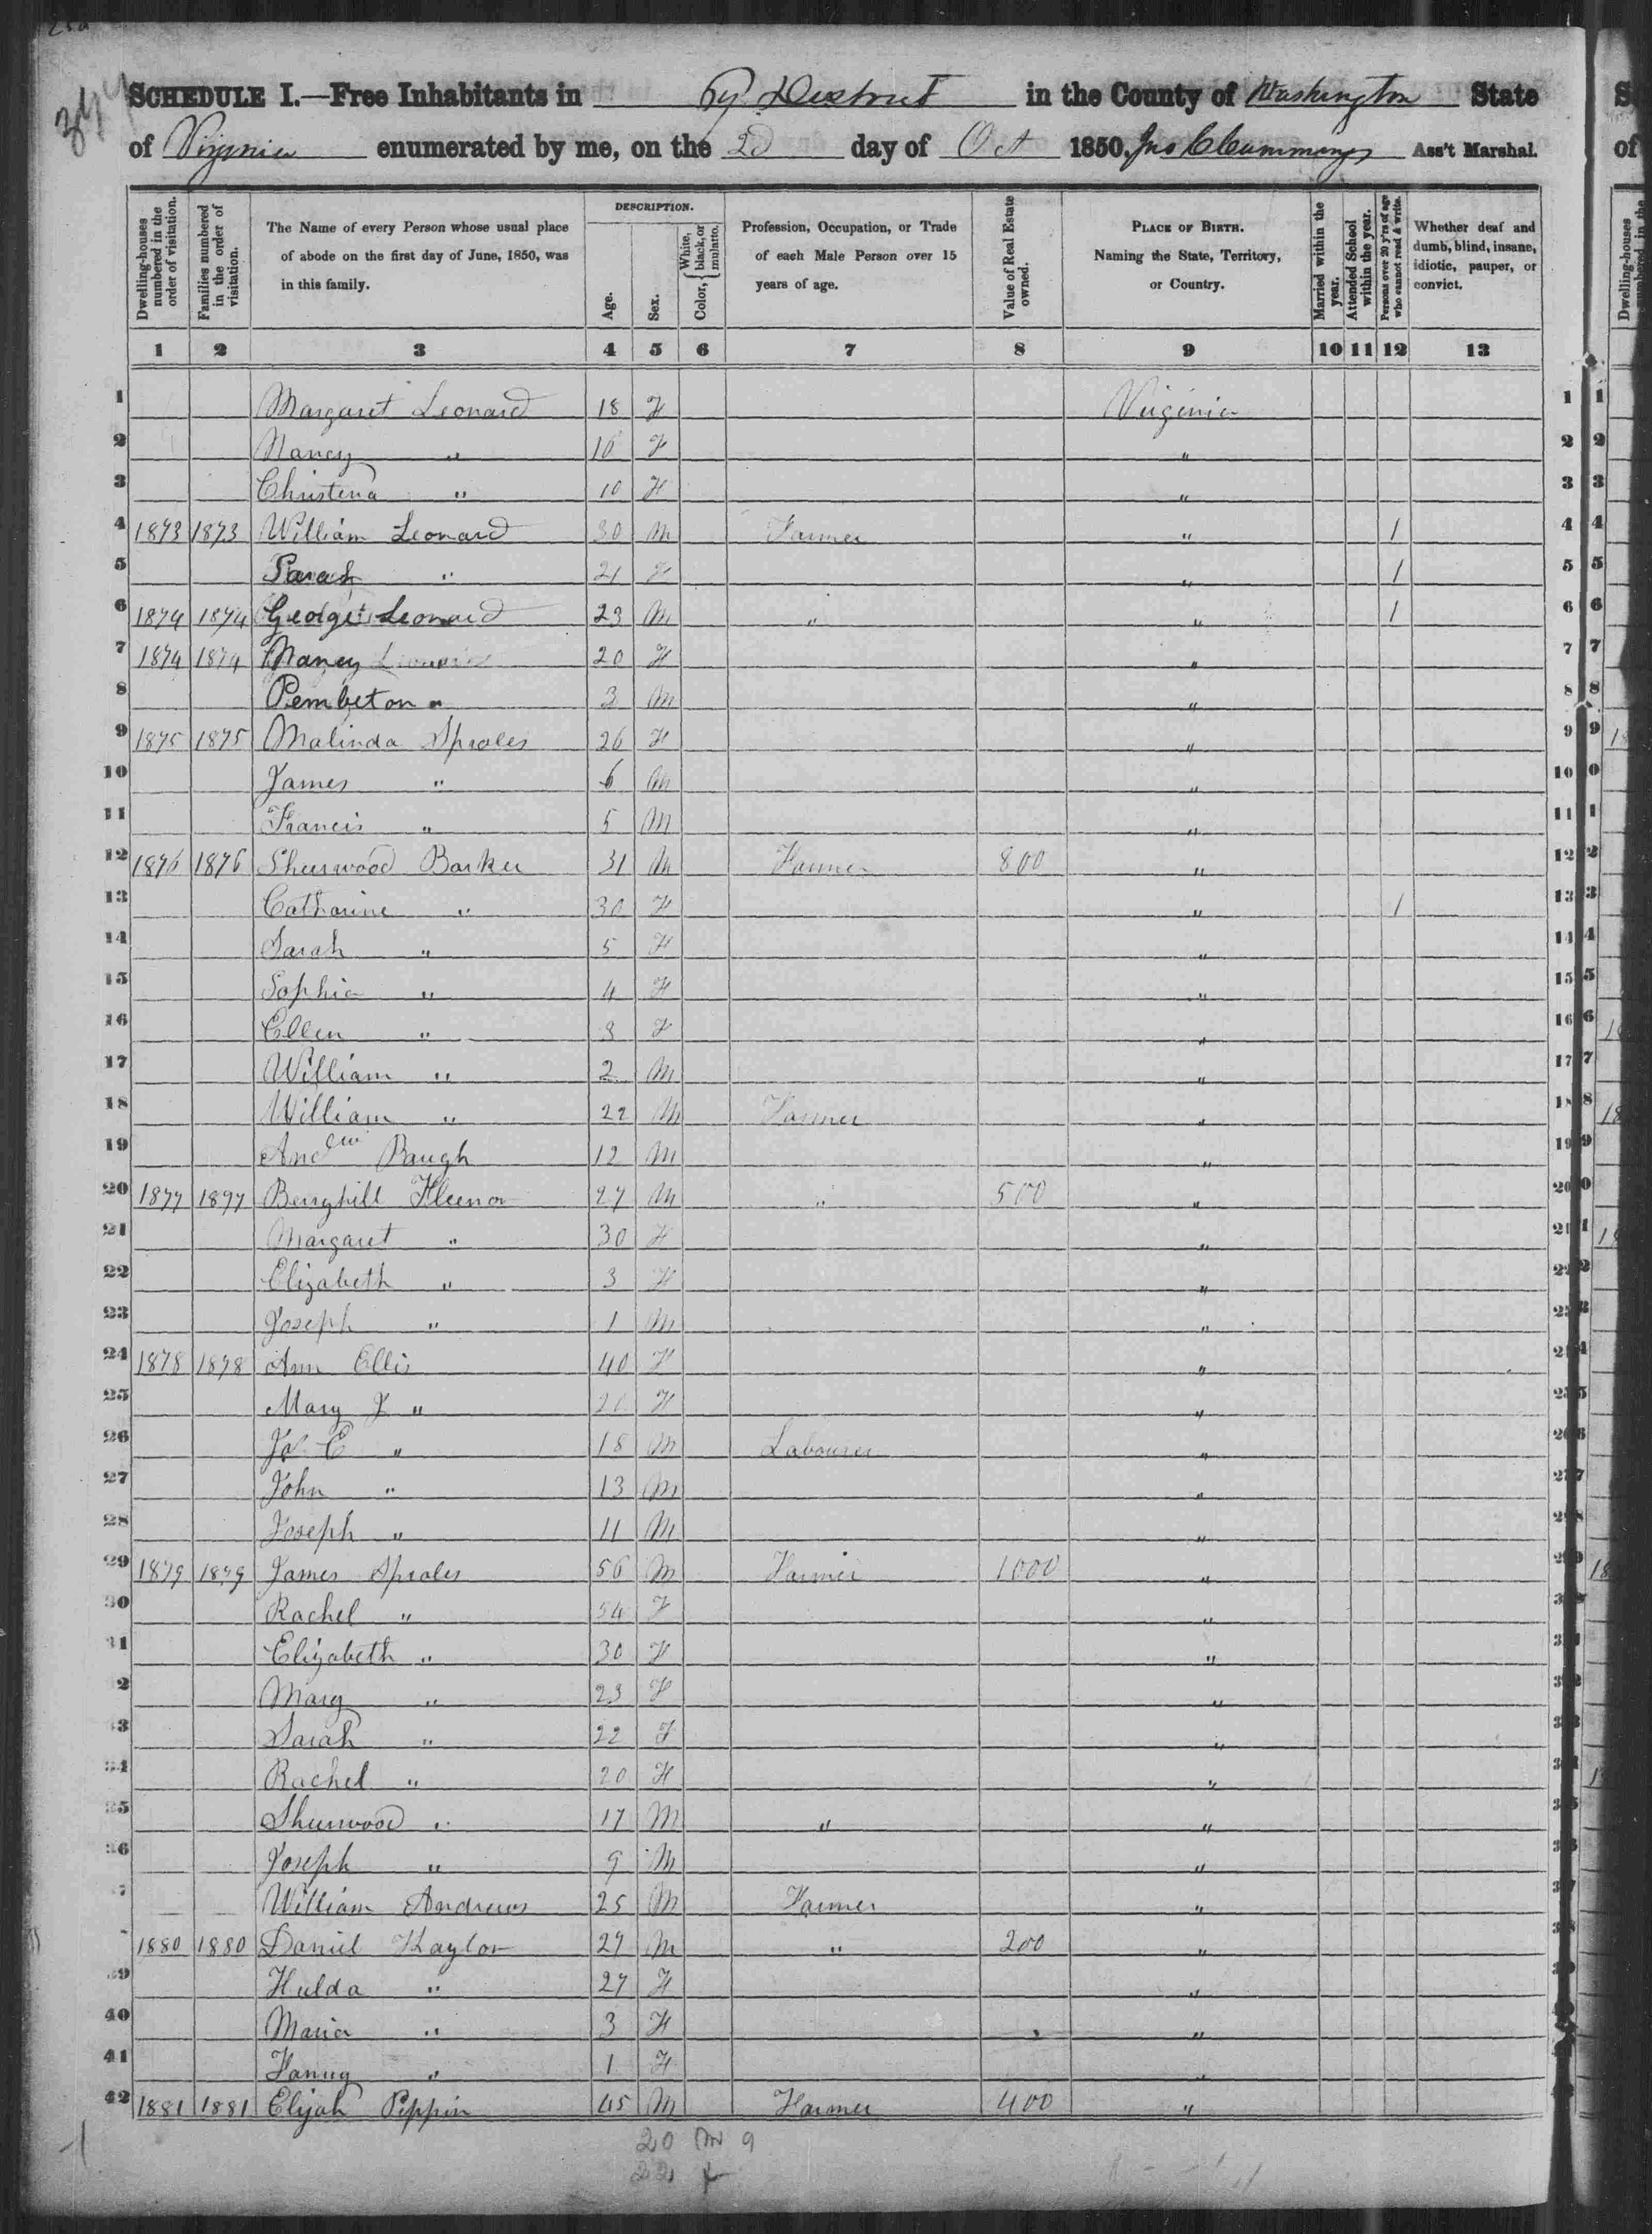 SCHEDULE I.—Free Inhabitants in 67 District in the County of Washington State
of Virginia enumerated by me, on the 2d day of Oct 1850. Jno C Cummings Ass't Marshal.
Dwelling-houses numbered in the order of visitation.
Families numbered in the order of visitation.
The Name of every Person whose usual place of abode on the first day of June, 1850, was in this family.
DESCRIPTION.
Age.
Sex.
Color, White, black, or mulatto.
Profession, Occupation, or Trade of each Male Person over 15 years of age.
Value of Real Estate owned.
PLACE OF BIRTH. Naming the State, Territory, or Country.
Married within the year.
Attended School within the year.
Persons over 20 y'rs of age who cannot read & write.
Whether deaf and dumb, blind, insane, idiotic, pauper, or convict.
1 2 3 4 5 6 7 8 9 10 11 12 13
1 Margaret Leonard 18 F Virginia 1
2 Nancy " 16 F " 2
3 Christena " 10 F " 3
4 1873 1873 William Leonard 30 M Farmer " 1 4
5 Sarah " 21 F " 1 5
6 1874 1874 George Leonard 23 M " " 1 6
7 1874 1874 Nancy 20 F " 7
8 Pembeton " 3 M " 8
9 1875 1875 Malinda Sproles 26 F " 9
10 James " 6 M " 10
11 Francis " 5 M " 11
12 1876 1876 Sherwood Barker 31 M Farmer 800 " 12
13 Catharine " 30 F " 1 13
14 Sarah " 5 F " 14
15 Sophia " 4 F " 15
16 Ellen " 3 F " 16
17 William " 2 M " 17
18 William " 22 M Farmer " 18
19 Andew Baugh 12 M " 19
20 1877 1897 Berryhill Fleenor 27 M " 500 " 20
21 Margaret " 30 F " 21
22 Elizabeth " 3 F " 22
23 Joseph " 1 M " 23
24 1878 1878 Ann Ellis 40 F " 24
25 Mary J " 20 F " 25
26 Jas E " 18 M Labourer " 26
27 John " 13 M " 27
28 Joseph " 11 M " 28
29 1879 1879 James Sproles 56 M Farmer 1000 " 29
30 Rachel " 54 F "
31 Elizabeth " 30 F "
2 Mary " 23 F "
33 Sarah " 22 F "
34 Rachel " 20 F "
35 Sherwood " 17 M " "
36 Joseph " 9 M "
William Andrews 25 M Farmer "
1880 1880 Daniel Kaylor 27 M " 200 "
39 Hulda " 27 F "
40 Maria " 3 F "
41 Fanny " 1 F "
42 1881 1881 Elijah Pippin 45 M Farmer 400 "
20 M 9
22 F